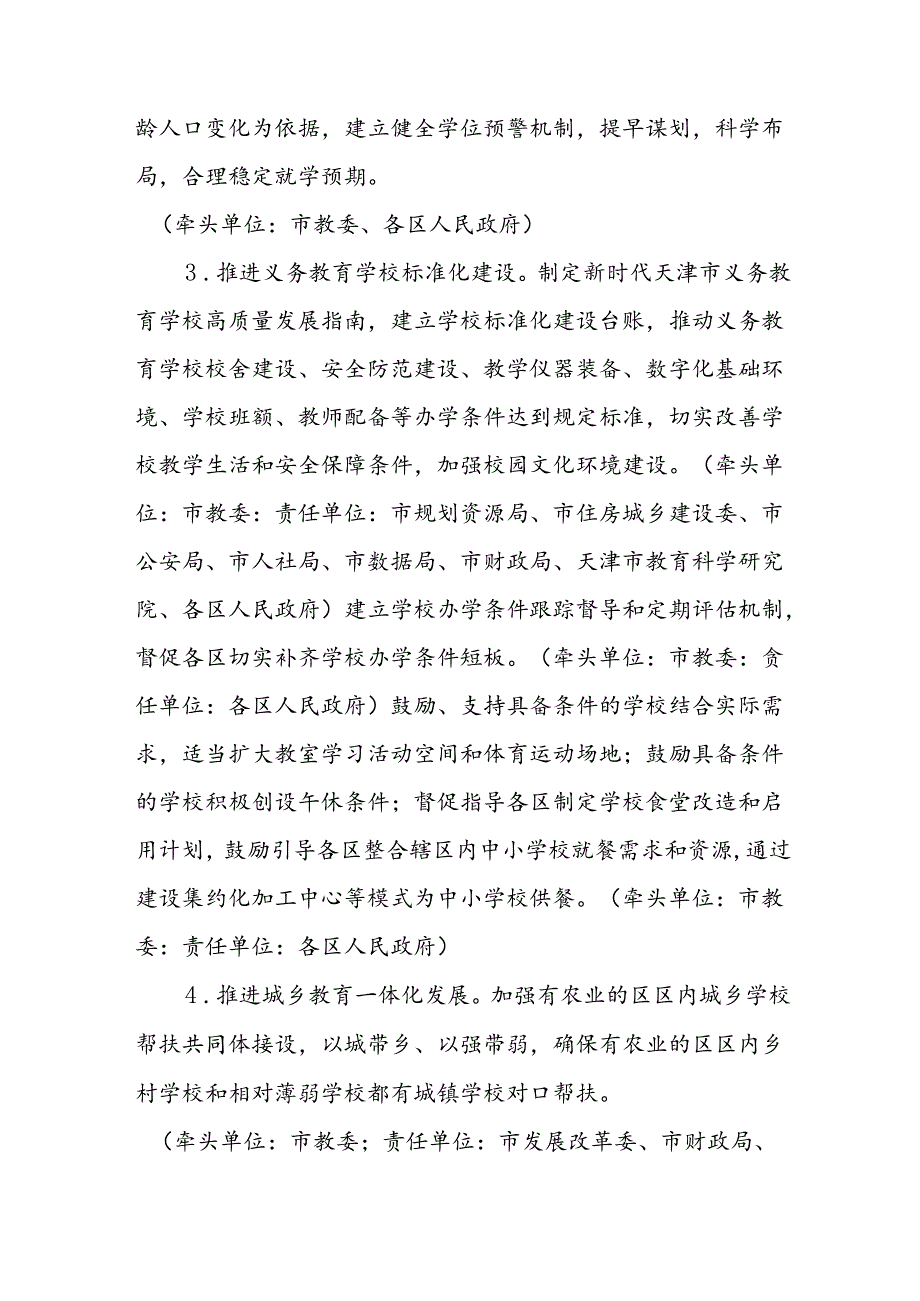 龄人口变化为依据，建立健全学位预警机制，提早谋划，科学布
局，合理稳定就学预期。
（牵头单位：市教委、各区人民政府）
3.推进义务教育学校标准化建设。制定新时代天津市义务教
育学校高质量发展指南，建立学校标准化建设台账，推动义务教
育学校校舍建设、安全防范建设、教学仪器装备、数字化基础环
境、学校班额、教师配备等办学条件达到规定标准，切实改善学
校教学生活和安全保障条件，加强校园文化环境建设。（牵头单
位：市教委：责任单位：市规划资源局、市住房城乡建设委、市
公安局、市人社局、市数据局、市财政局、天津市教育科学研究
院、各区人民政府）建立学校办学条件跟踪督导和定期评估机制，
督促各区切实补齐学校办学条件短板。（牵头单位：市教委：贪
任单位：各区人民政府）鼓励、支持具备条件的学校结合实际需
求，适当扩大教室学习活动空间和体育运动场地；鼓励具备条件
的学校积极创设午休条件；督促指导各区制定学校食堂改造和启
用计划，鼓励引导各区整合辖区内中小学校就餐需求和资源,通过
建设集约化加工中心等模式为中小学校供餐。（牵头单位：市教
委：责任单位：各区人民政府）
4.推进城乡教育一体化发展。加强有农业的区区内城乡学校
帮扶共同体接设，以城带乡、以强带弱，确保有农业的区区内乡
村学校和相对薄弱学校都有城镇学校对口帮扶。
（牵头单位：市教委；责任单位：市发展改革委、市财政局、